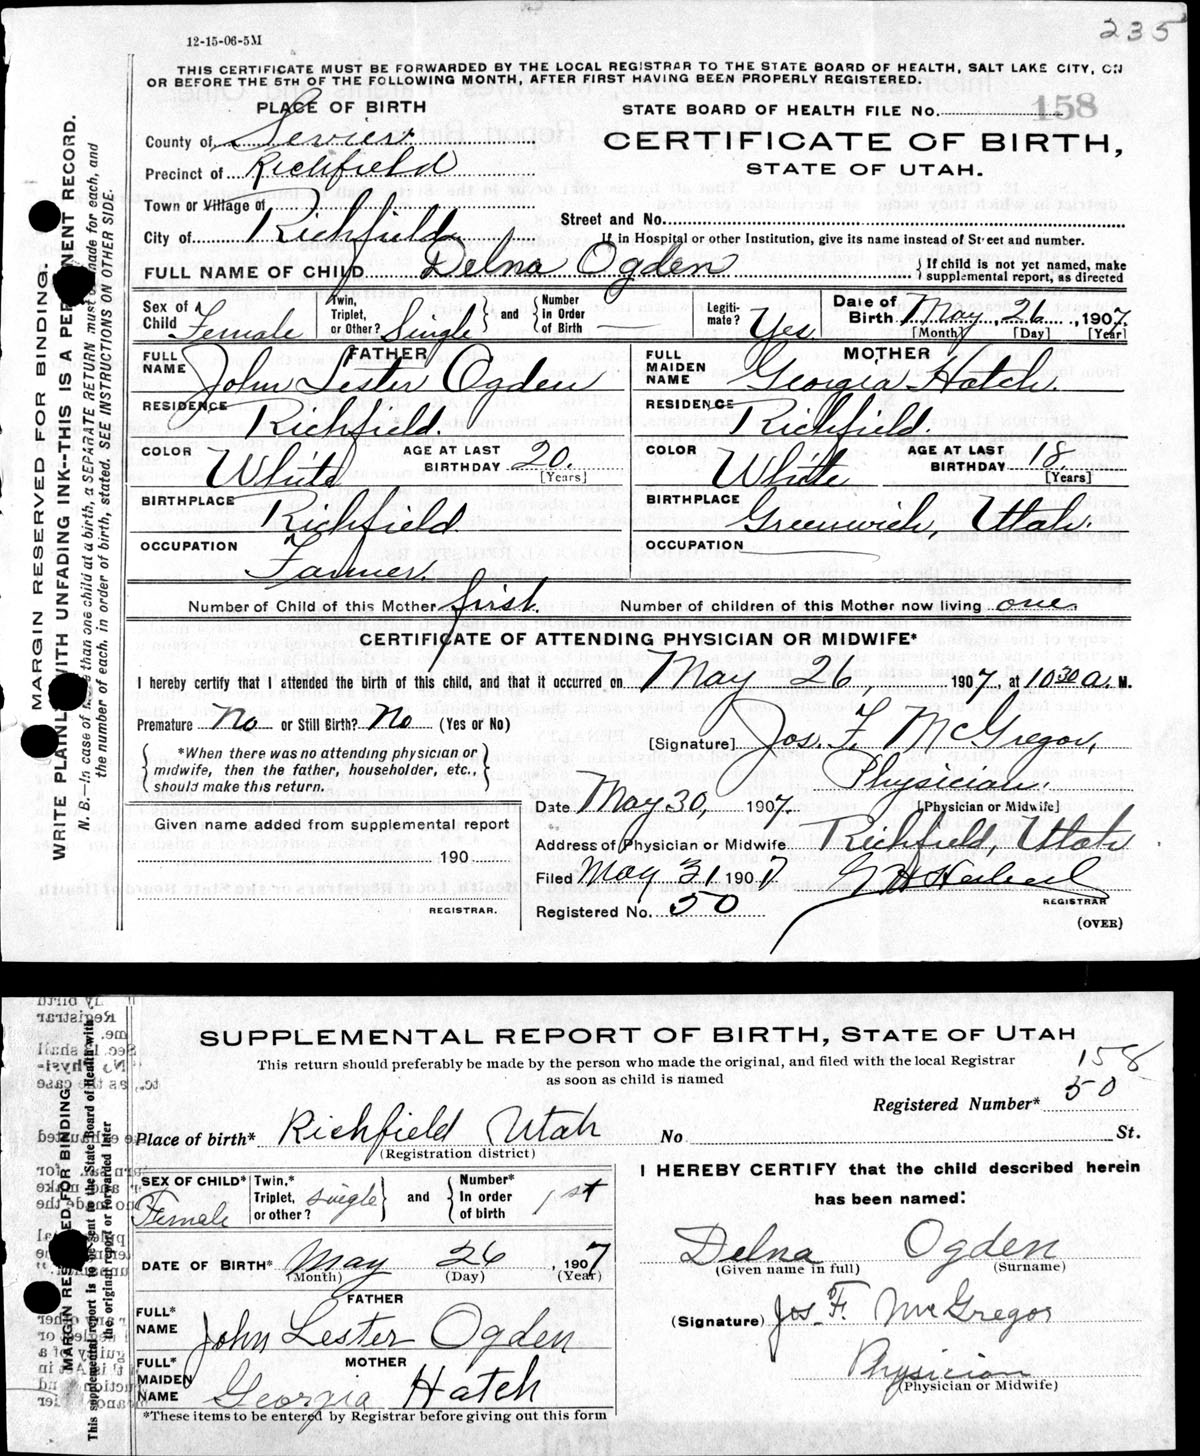 235
12-15-06-5M
THIS CERTIFICATE MUST BE FORWARDED BY THE LOCAL REGISTRAR TO THE STATE BOARD OF HEALTH, SALT LAKE CITY, ON
OR BEFORE THE 5TH OF THE FOLLOWING MONTH, AFTER FIRST HAVING BEEN PROPERLY REGISTERED.
PLACE OF BIRTH
STATE BOARD OF HEALTH FILE No. 158
County of Sevier
CERTIFICATE OF BIRTH,
Precinct of Richfield
STATE OF UTAH.
Town or Village of
Street and No.
City of Richfield
If in Hospital or other Institution, give its name instead of Street and number.
FULL NAME OF CHILD Delna Ogden { If child is not yet named, make supplemental report, as directed
Sex of Child Female
Twin, Triplet, or Other? Single } and { Number in Order of Birth —
Legitimate? Yes
Date of Birth May, 26, 1907.
[Month] [Day] [Year]
FATHER
FULL NAME John Lester Ogden
MOTHER
FULL MAIDEN NAME Georgia Hatch.
RESIDENCE Richfield.
RESIDENCE Richfield.
COLOR White AGE AT LAST BIRTHDAY 20. [Years]
COLOR White AGE AT LAST BIRTHDAY 18. [Years]
BIRTHPLACE Richfield
BIRTHPLACE Greenwich, Utah.
OCCUPATION Farmer.
OCCUPATION
Number of Child of this Mother first. Number of children of this Mother now living one.
CERTIFICATE OF ATTENDING PHYSICIAN OR MIDWIFE*
I hereby certify that I attended the birth of this child, and that it occurred on May 26, 1907, at 10 30 a. M.
Premature No or Still Birth? No (Yes or No)
[Signature] Jos. F. McGregor,
{ *When there was no attending physician or
midwife, then the father, householder, etc.,
should make this return. }
Physician.
[Physician or Midwife]
Date May 30, 1907.
Given name added from supplemental report
190
REGISTRAR.
Address of Physician or Midwife Richfield, Utah
Filed May 31 1907
REGISTRAR
Registered No. 50
(OVER)
MARGIN RESERVED FOR BINDING.
WRITE PLAINLY WITH UNFADING INK--THIS IS A PERMANENT RECORD.
N. B.—In case of more than one child at a birth, a SEPARATE RETURN must be made for each, and
the number of each, in order of birth, stated. SEE INSTRUCTIONS ON OTHER SIDE.
SUPPLEMENTAL REPORT OF BIRTH, STATE OF UTAH
This return should preferably be made by the person who made the original, and filed with the local Registrar
as soon as child is named
158
Registered Number* 50
Place of birth* Richfield Utah
(Registration district)
No St.
SEX OF CHILD* Female
Twin,* Triplet, or other? single } and { Number* In order of birth 1st
I HEREBY CERTIFY that the child described herein
has been named:
Delna Ogden
(Given name in full) (Surname)
DATE OF BIRTH* May 26, 1907
(Month) (Day) (Year)
FATHER
FULL* NAME John Lester Ogden
(Signature) Jos. F. McGregor
MOTHER
FULL* MAIDEN NAME Georgia Hatch
Physician
(Physician or Midwife)
*These items to be entered by Registrar before giving out this form
MARGIN RESERVED FOR BINDING
This supplemental report is to be sent to the State Board of Health with
the original report or forwarded later